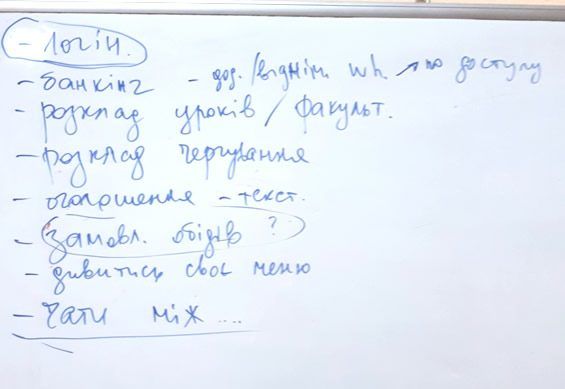 - логін.
- банкінг - дод./відмін. wh. ↗ по доступу
- розклад уроків / факульт.
- розклад чергування
- оголошення - текст.
- замовл. обідів ?
- дивитись своє меню
- Чати між ....